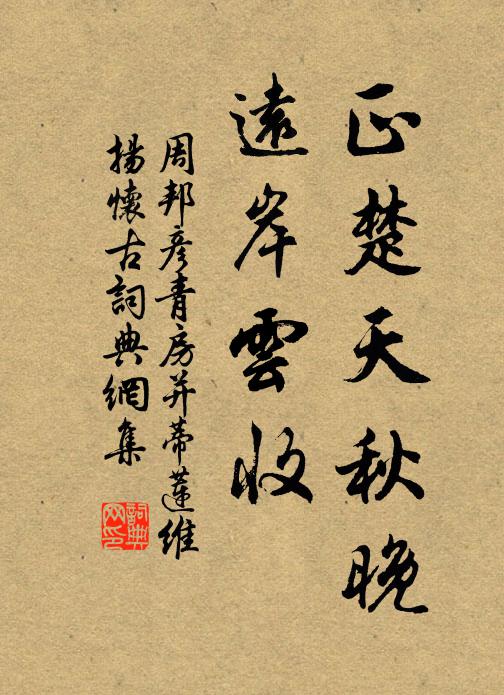 正楚天秋晚
遠岸雲收
周邦彥青房并蒂蓮維
揚懷古詞典網集
詞典
網印